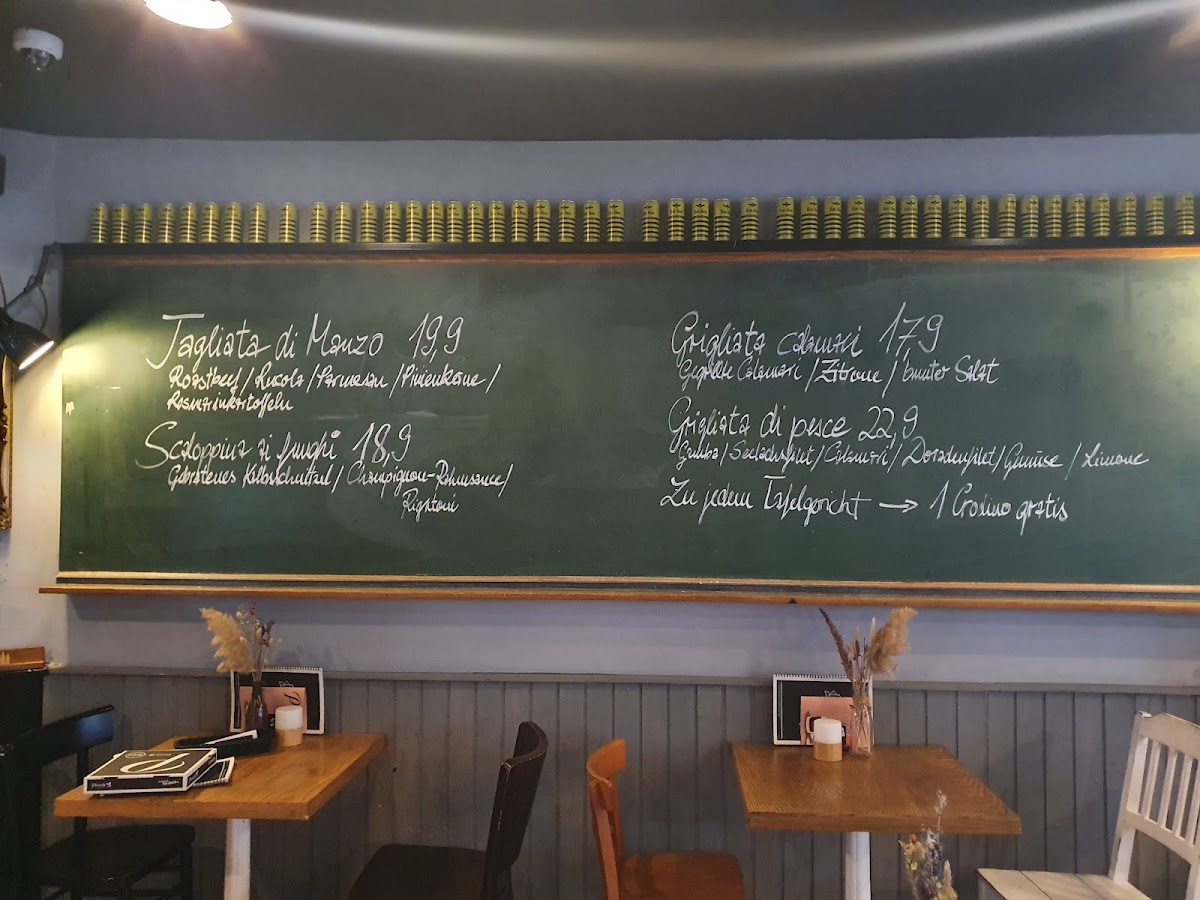 Tagliata di Manzo 19,9
Roastbeef / Rucola / Parmesan / Pinienkerne /
Rosmarinkartoffeln
Scaloppina ai funghi 18,9
Gebratenes Kalbsschnitzel / Champignon-Rahmsauce /
Rigatoni
Grigliata calamari 17,9
Gegrillte Calamari / Zitrone / bunter Salat
Grigliata di pesce 22,9
Gamba / Seelachsfilet / Calamari / Doradenfilet / Gemüse / Limone
Zu jedem Tafelgericht → 1 Crodino gratis